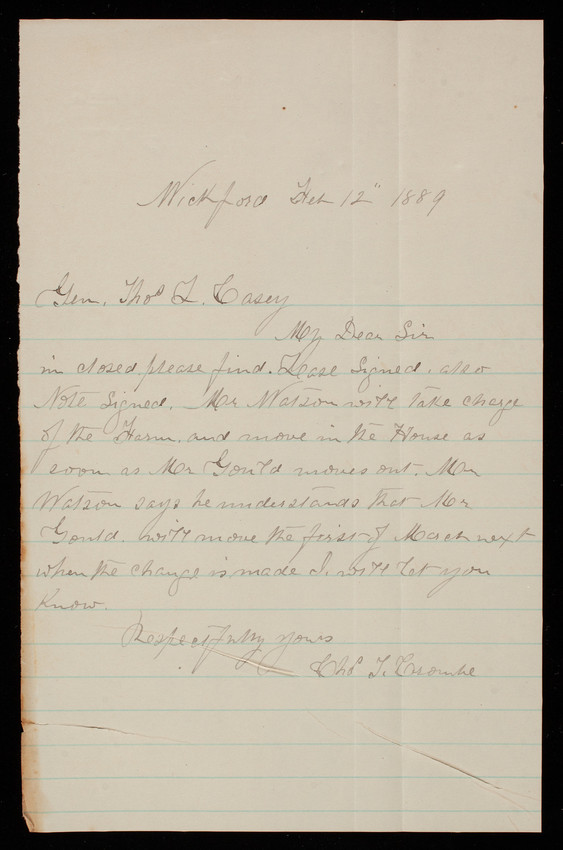 Wickford Feb 12" 1889
Gen. Thos L. Casey
My Dear Sir
in closed please find. Lease Signed. also
Note Signed. Mr Watson will take charge
of the Farm, and move in the House as
soon as Mr Gould moves out. Mr
Watson says he understands that Mr
Gould. will move the first of March next
when the change is made I. will let you
Know.
Respectfully yours
Chas T.